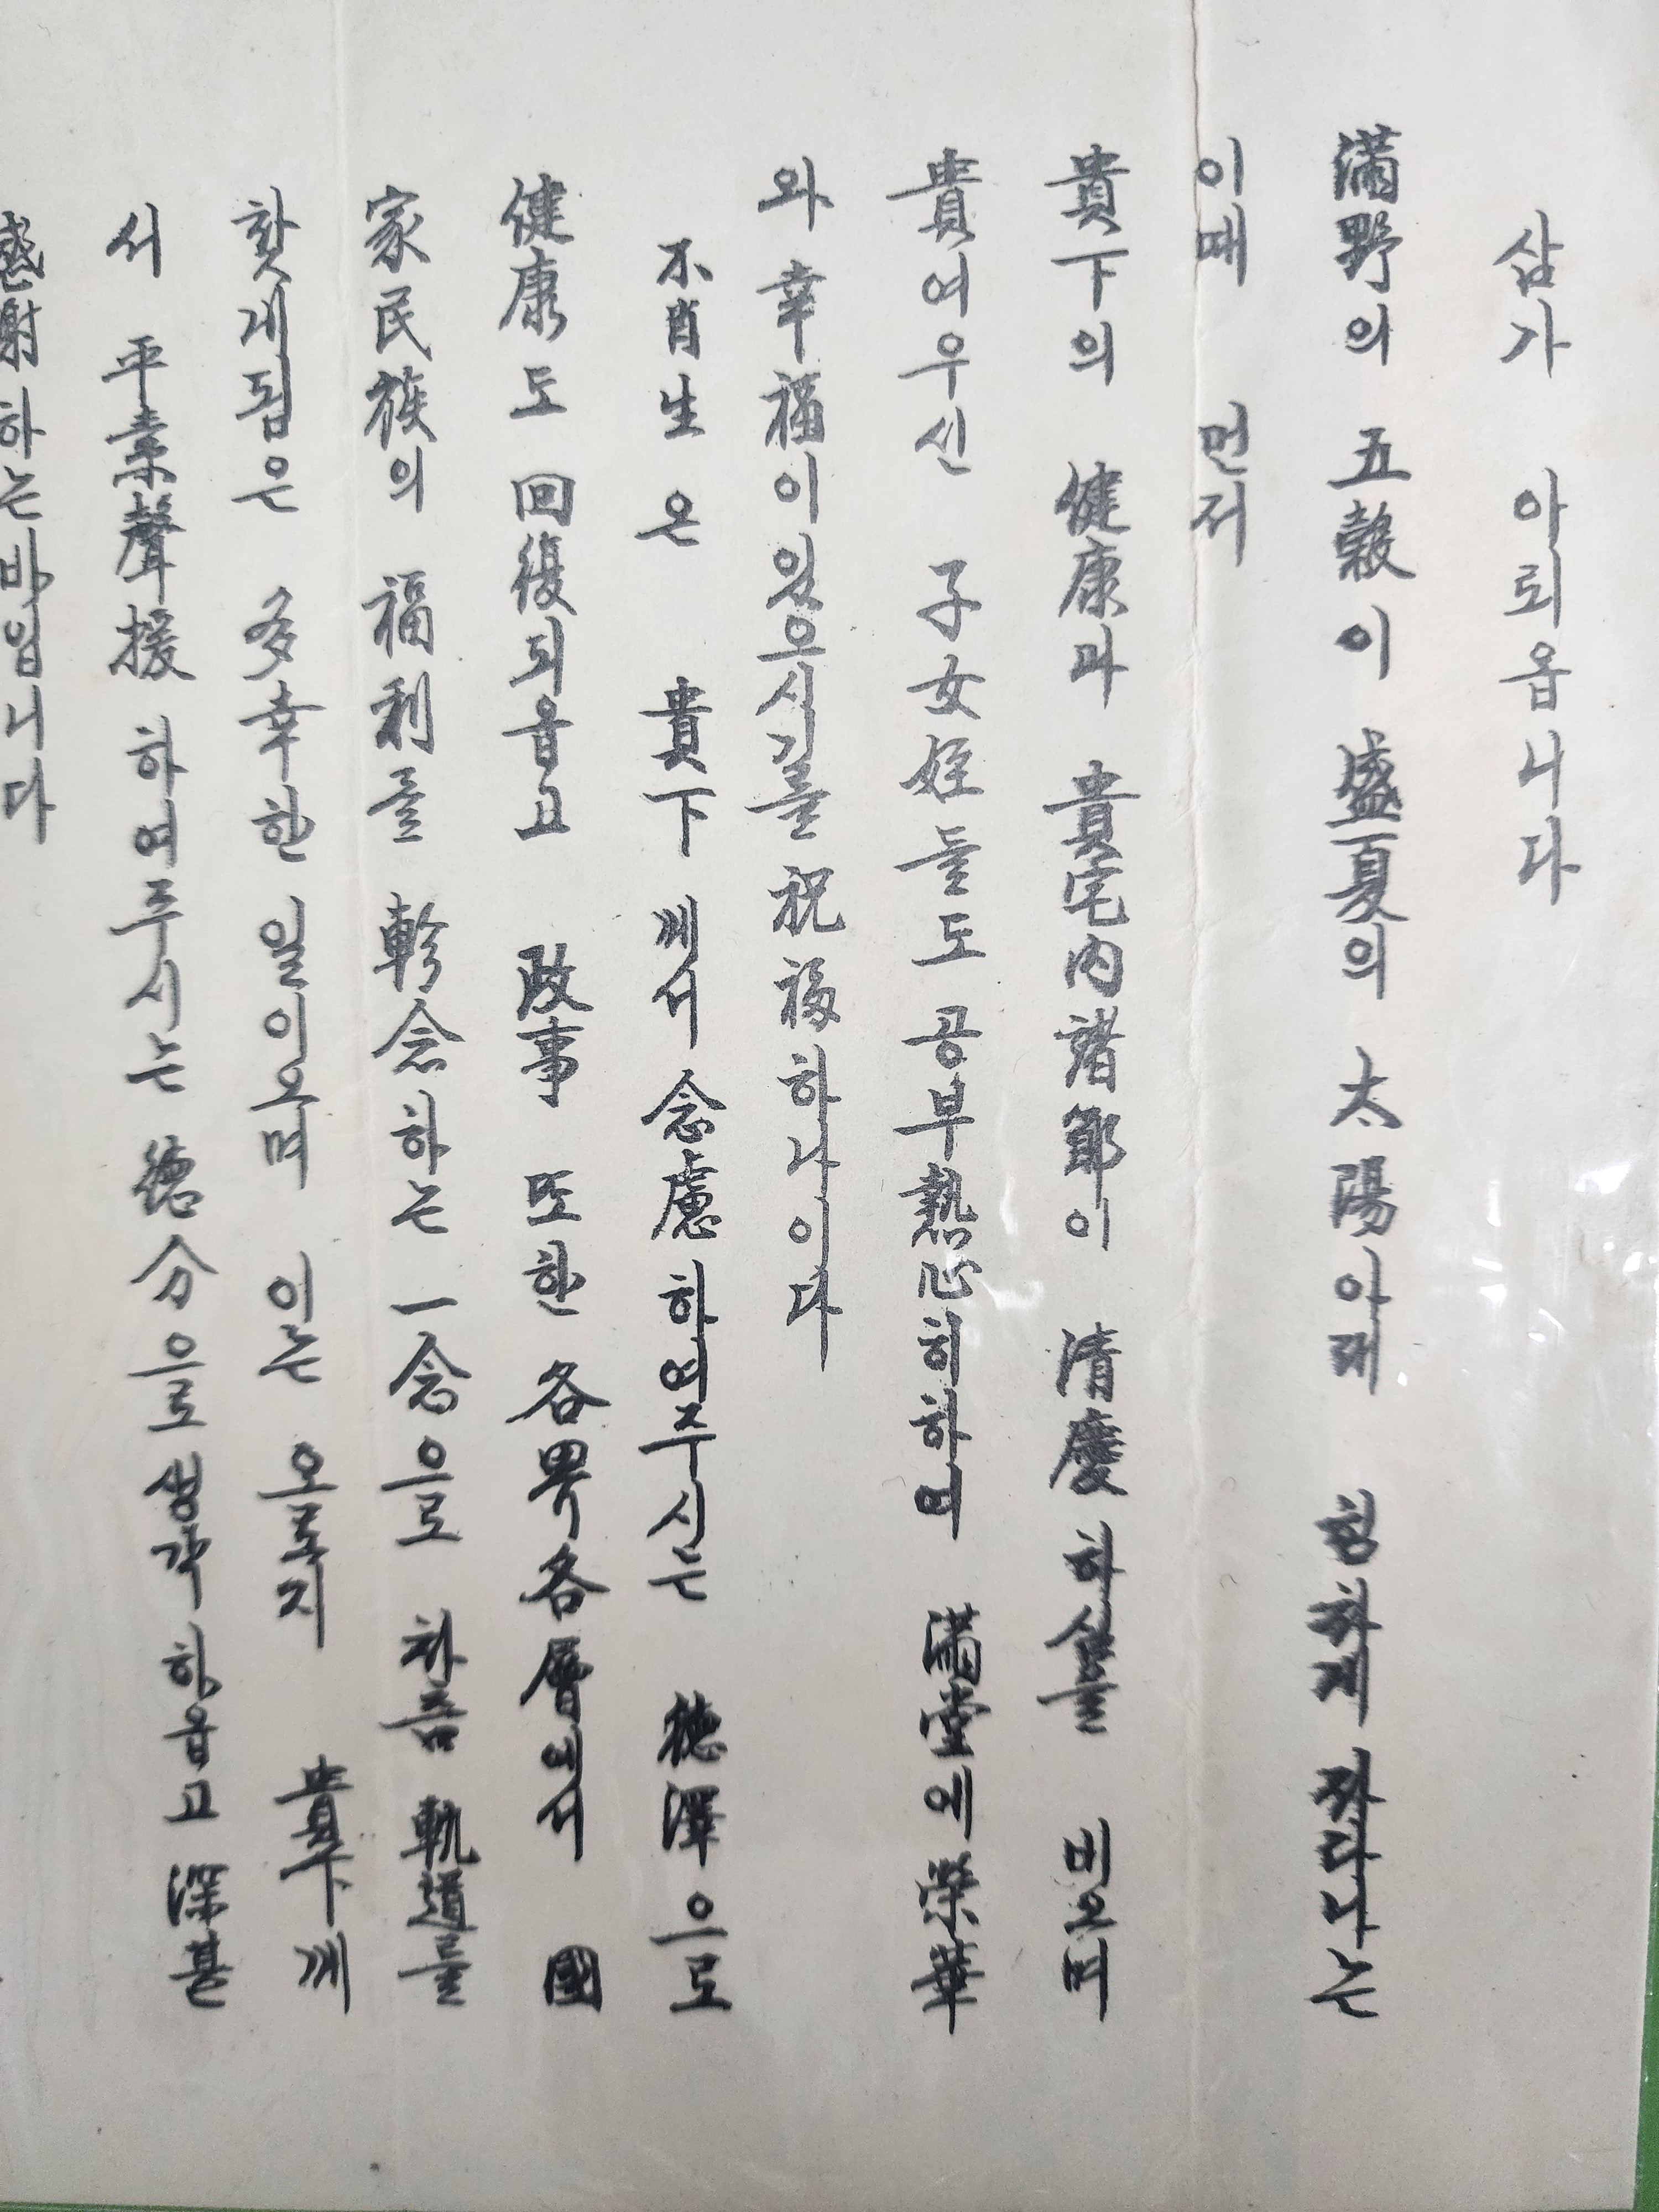 삼가 아뢰옵니다
滿野의 五穀이 盛夏의 太陽아래 힘차게 자라나는
이때 먼저
貴下의 健康과 貴宅內諸節이 淸慶하심을 비오며
貴여우신 子女姪들도 공부熱心히하여 滿堂에 榮華
와 幸福이 있으시길를 祝福하나이다
不肖生은 貴下께서 念慮하여주시는 德澤으로
健康도 回復되옵고 政事 또한 各界各層에서 國
家民族의 福利를 軫念하는 一念으로 차츰 軌道를
찾게됨은 多幸한 일이오며 이는 오로지 貴下께
서 平素聲援하여주시는 德分으로 생각하옵고 深甚
感謝하는바입니다